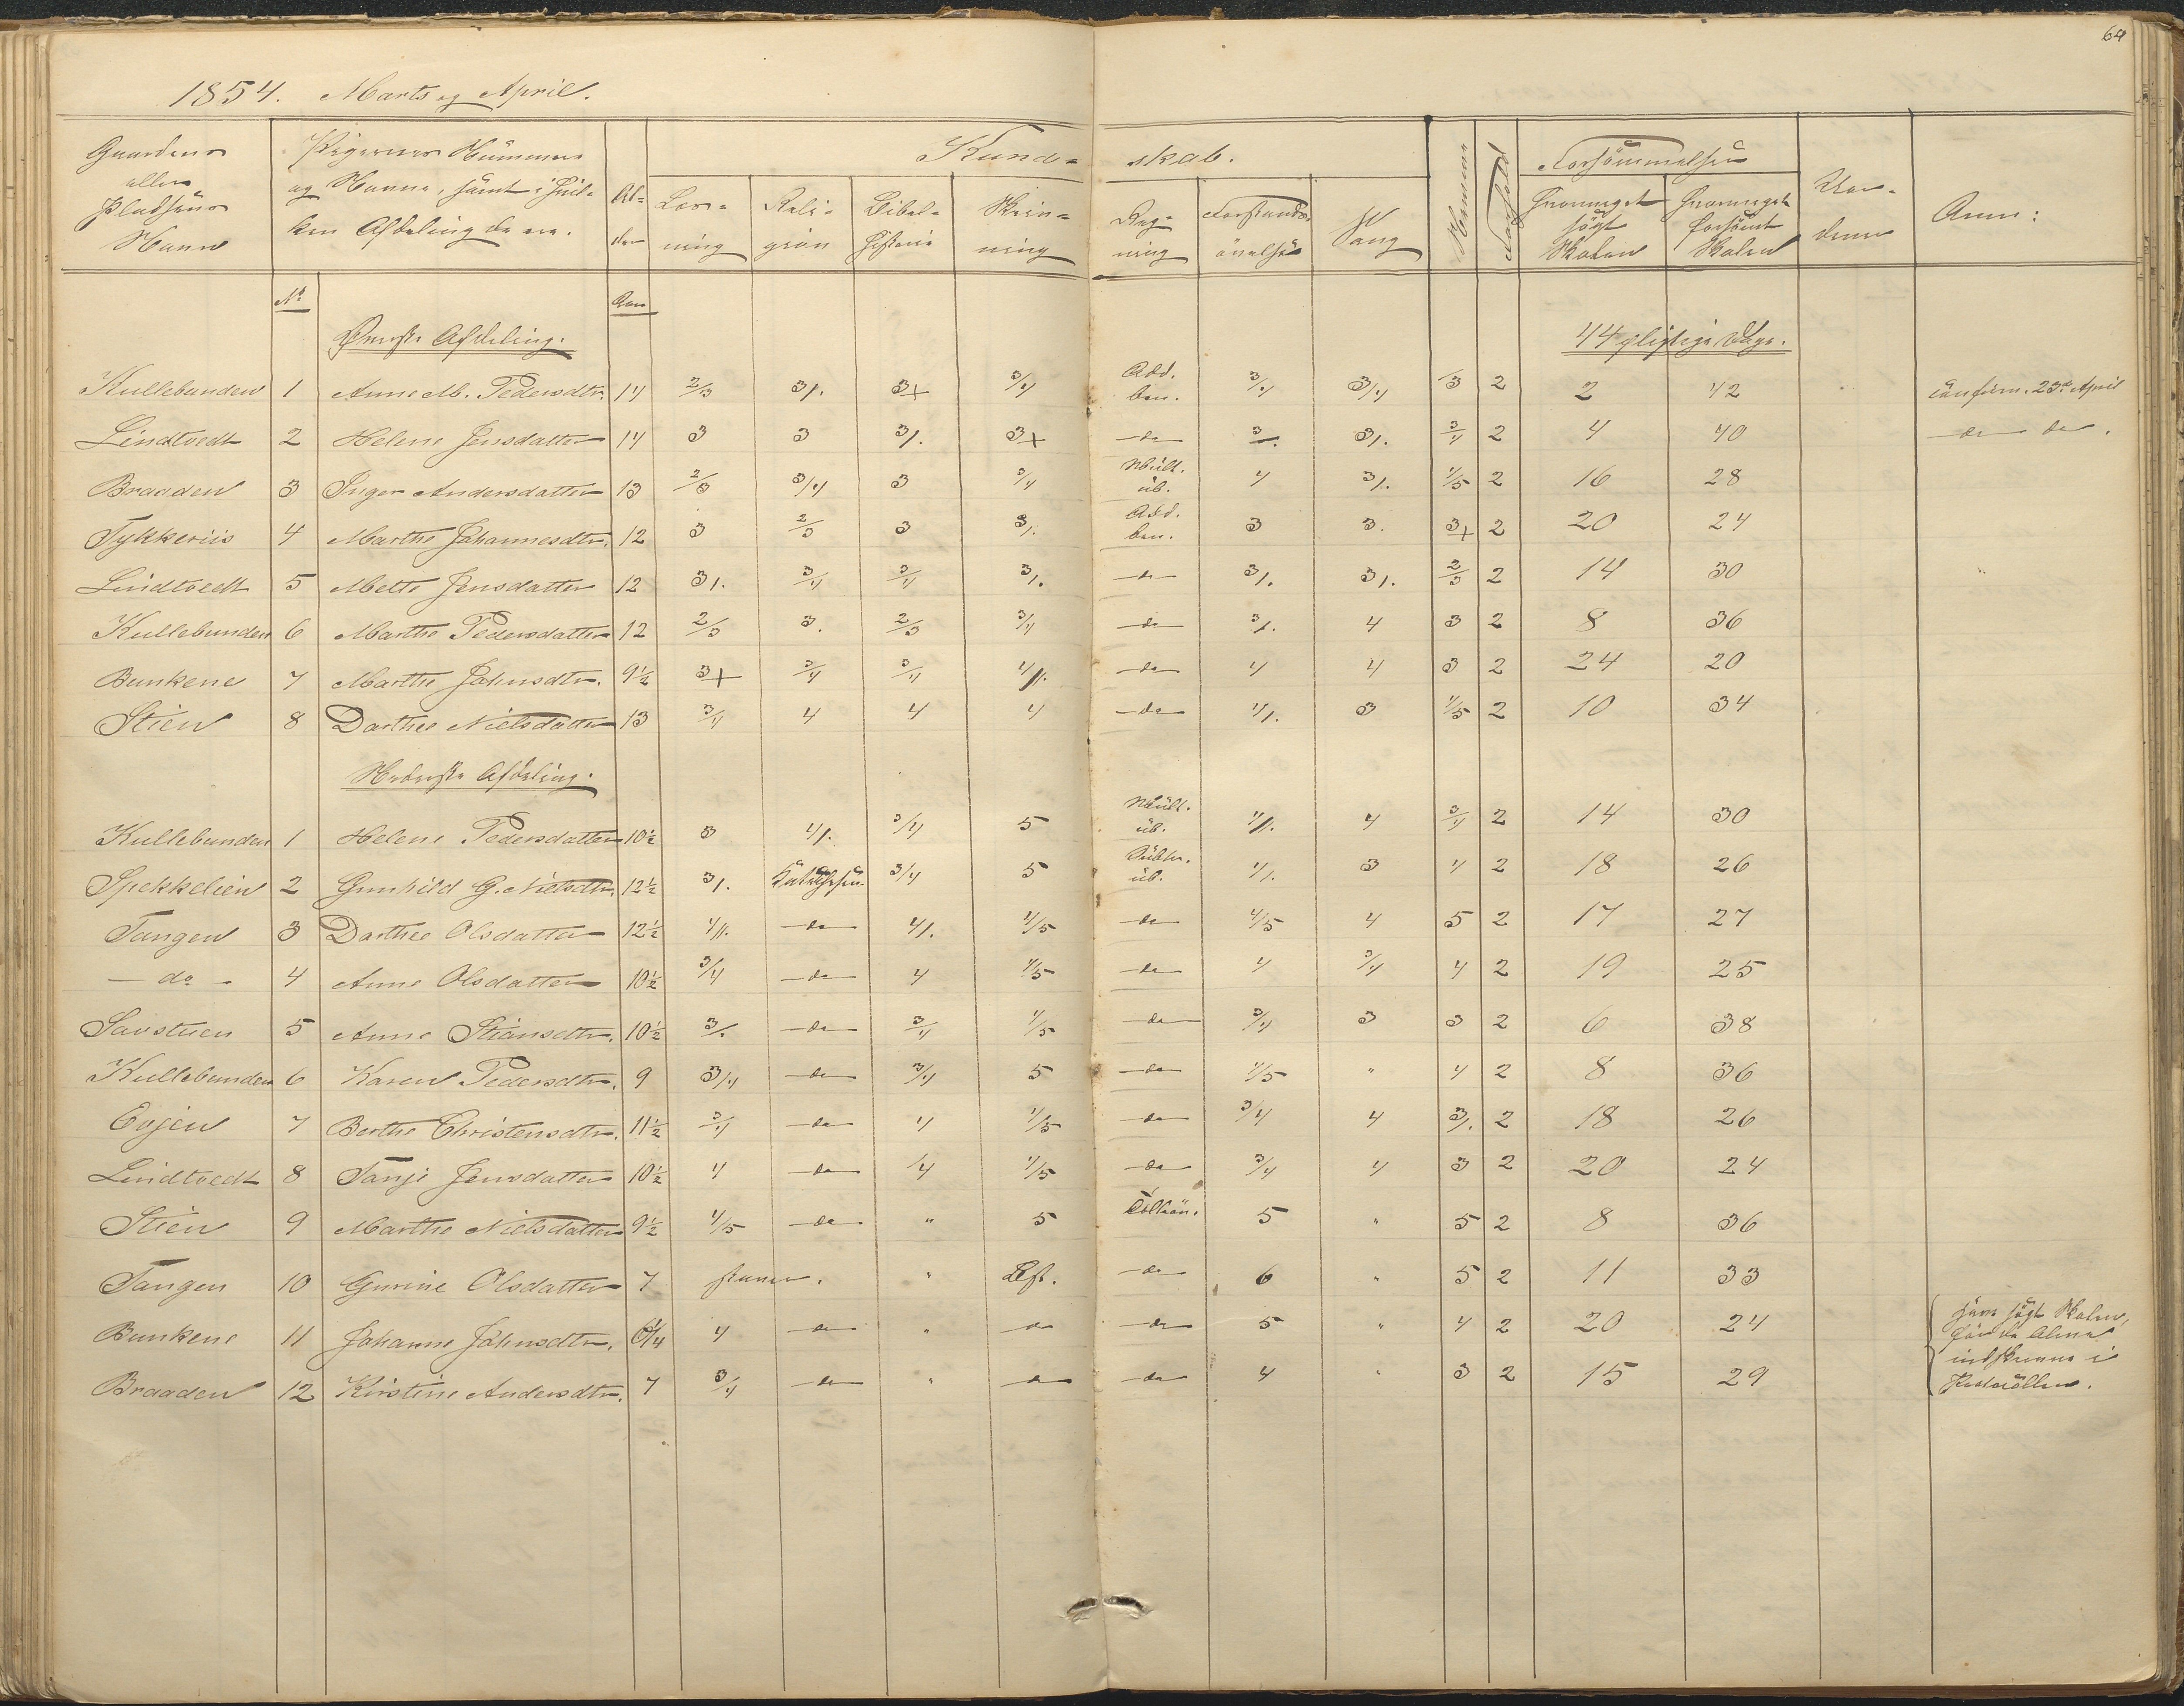 64
1854. Marts og April.
Gaardens eller Pladsens Navn
Pigernes Nummer og Navne, samt i hvilken Afdeling de ere.
Alder
Kundskab.
Læsning Religion Bibelhistorie Skrivning Regning Forstandsövelser Sang
Nemme Forhold
Forsömmelser
Hvormeget sögt Skolen Hvormeget forsömt Skolen
Anm:
No Aar
Øverste Afdeling. 44 pligtige Dage.
Kullebunden 1 Anne M. Pedersdtr. 14 2/3 3/. 3+ 3/4 Add. ben. 3/4 3/4 3 2 2 42 confirm. 23de April
Lindtvedt 2 Helene Jensdatter 14 3 3 3/. 3+ do 3/. 3/. 3/4 2 4 40 do do.
Braaden 3 Inger Andersdatter 13 2/3 3/4 3 3/4 Mult. üb. 4 3/. 4/5 2 16 28
Tykkeriis 4 Marthe Johannesdtr. 12 3 2/3 3 3/. Add. ben. 3 3. 3+ 2 20 24
Lindtvedt 5 Mette Jensdatter 12 3/. 3/4 3/4 3/. do 3/. 3/. 2/3 2 14 30
Kullebunden 6 Marthe Pedersdatter 12 2/3 3. 2/3 3/4 do 3/. 4 3 2 8 36
Bunkene 7 Marthe Johnsdtr. 9½ 3+ 3/4 3/4 4/. do 4 4 3 2 24 20
Stien 8 Dorthee Nielsdatter 13 3/4 4 4 4 do 4/. 3 4/5 2 10 34
Nederste Afdeling.
Kullebunden 1 Helene Pedersdatter 10½ 3 4/. 3/4 5 Mult. üb. 4/. 4 3/4 2 14 30
Spekkelien 2 Gunhild G. Nielsdtr. 12½ 3/. 3/4 5 Subtr. üb. 4/. 3 4 2 18 26
Tangen 3 Dorthee Olsdatter 12½ 4/. do 4/. 4/5 do 4/5 4 5 2 17 27
do 4 Anne Olsdatter 10½ 3/4 do 4 4/5 do 4 3/4 4 2 19 25
Savstuen 5 Anne Stiansdtr. 10½ 3/. do 3/4 4/5 do 3/4 3 3 2 6 38
Kullebunden 6 Karen Pedersdtr. 9 3/4 do 3/4 5 do 4/5 " 4 2 8 36
Evjen 7 Berthe Christensdtr. 11½ 3/4 do 4 4/5 do 3/4 4 3/. 2 18 26
Lindtvedt 8 Tanje Jensdatter 10½ 4 do 4 4/5 do 3/4 4 3 2 20 24
Stien 9 Marthe Nielsdatter 9½ 4/5 do " 5 5 " 5 2 8 36
Tangen 10 Gurine Olsdatter 7 staver. " do 6 " 5 2 11 33
Bunkene 11 Johanne Johnsdtr. 4 do " do do 5 " 4 2 20 24
Braaden 12 Kirstine Andersdtr. 7 3/4 do " do do 4 " 3 2 15 29
have sögt Skolen,
för de bleve
indskrevne i
Protocollen.